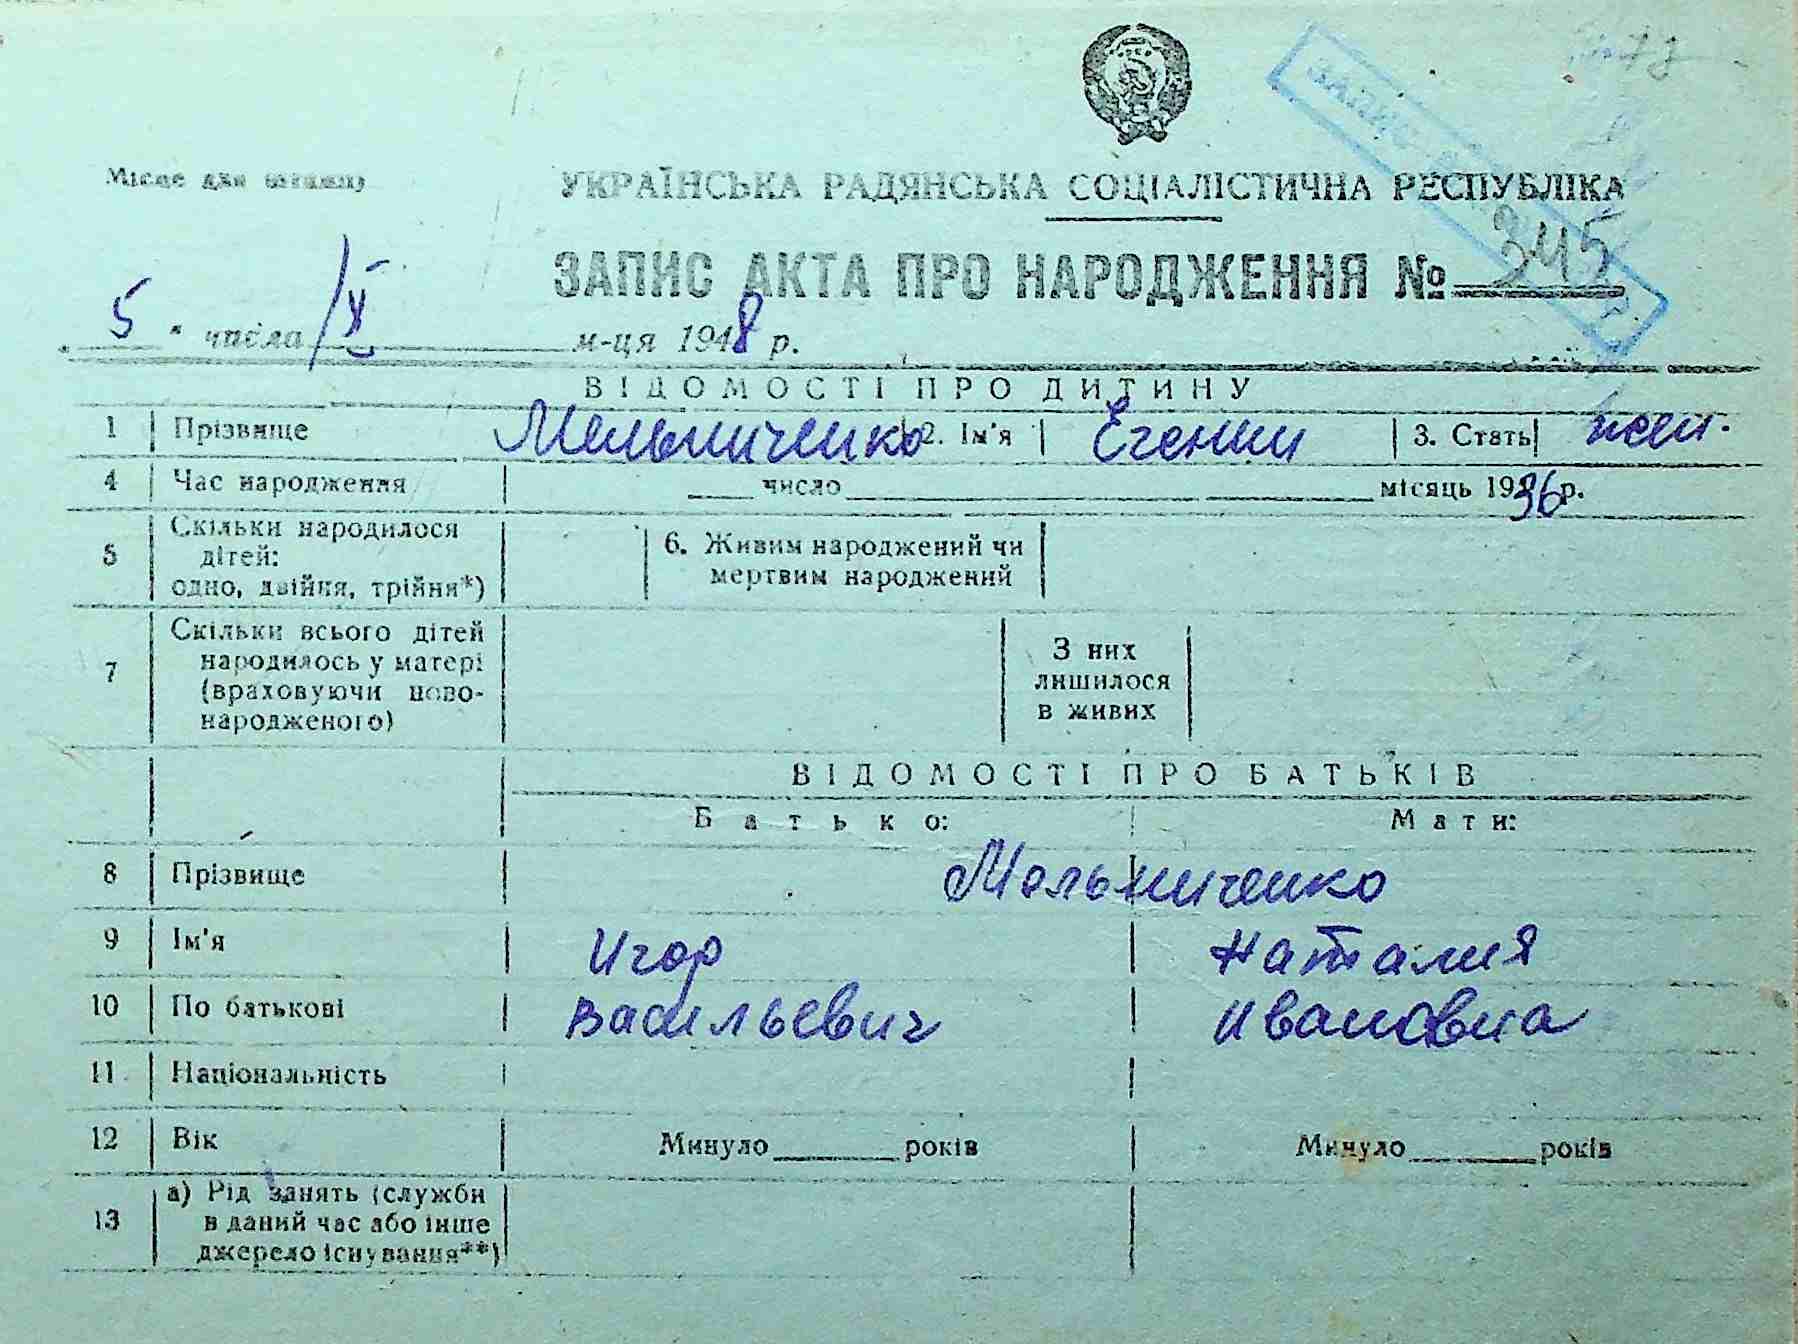 Місце для штампу
УКРАЇНСЬКА РАДЯНСЬКА СОЦІАЛІСТИЧНА РЕСПУБЛІКА
ЗАПИС АКТА ПРО НАРОДЖЕННЯ № 345
5 " числа / X м-ця 1948 р.
ВІДОМОСТІ ПРО ДИТИНУ
1 Прізвище Мельниченко 2. Ім'я Евгений 3. Стать
4 Час народження число місяць 1936 р.
5 Скільки народилося
дітей:
одно, двійня, трійня*)
6. Живим народжений чи
мертвим народжений
7 Скільки всього дітей
народилось у матері
(враховуючи ново-
народженого)
З них
лишилося
в живих
ВІДОМОСТІ ПРО БАТЬКІВ
Батько: Мати:
8 Прізвище Мельниченко
9 Ім'я Игор Наталия
10 По батькові Васильевич Ивановна
11 Національність
12 Вік Минуло років Минуло років
13 а) Рід занять (служби
в даний час або інше
джерело існування**)